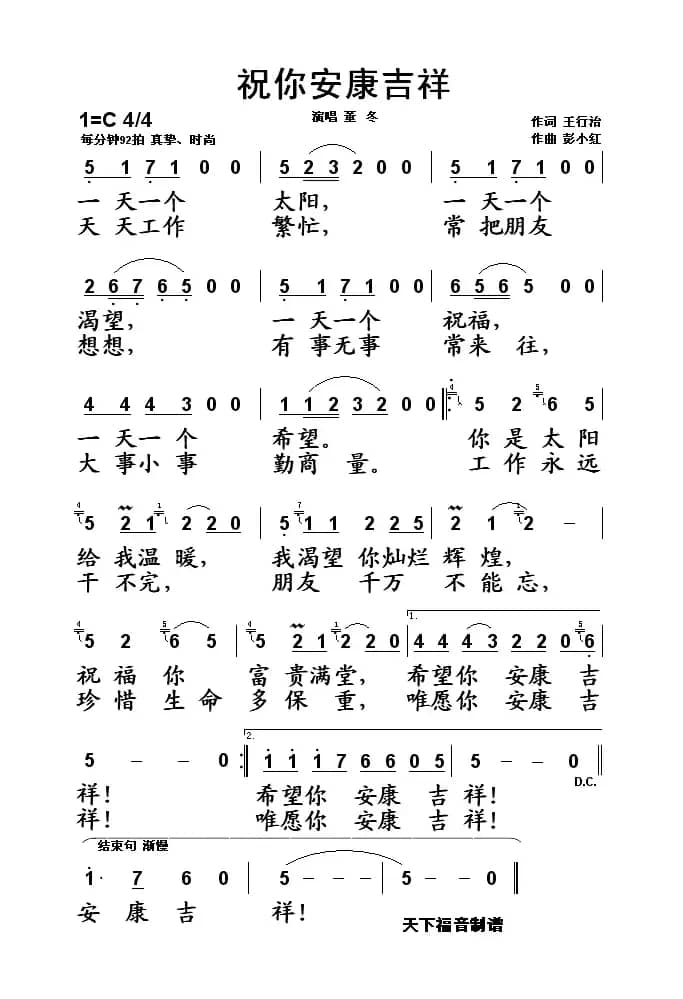 祝你安康吉祥
1=C 4/4
演唱 董 冬
作词 王行治
每分钟92拍 真挚、时尚
作曲 彭小红
5 1 7 1 0 0 | 5 2 3 2 0 0 | 5 1 7 1 0 0 |
一 天一个 太阳， 一 天一个
天 天工作 繁忙， 常 把朋友
2 6 7 6 5 0 0 | 5 1 7 1 0 0 | 6 5 6 5 0 0 |
渴望， 一 天一个 祝福，
想想， 有 事无事 常来 往，
4 4 4 3 0 0 | 1 1 2 3 2 0 0 :‖: 4 5 2 5 6 5
一 天一 个 希望。 你 是 太 阳
大 事小 事 勤商 量。 工 作 永 远
4 5 2 1 1 2 2 0 | 5 1 1 2 2 2 5 | 2 1 1 2 –
给 我温 暖， 我渴望 你灿烂 辉 煌，
干 不完， 朋友 千万 不 能 忘，
4 5 2 5 6 5 | 4 5 2 1 1 2 2 0 | 1. 4 4 4 3 2 2 0 5 6
祝 福 你 富 贵满 堂， 希望你 安康 吉
珍 惜 生 命 多 保 重， 唯愿你 安康 吉
5 – – 0 :‖ 2. 1 1 1 7 6 6 0 5 | 5 – – 0 ‖
D.C.
祥！ 希望你 安康 吉 祥！
祥！ 唯愿你 安康 吉 祥！
结束句 渐慢
1· 7 6 0 | 5 – – – | 5 – – 0 ‖
安 康 吉 祥！
天下福音制谱